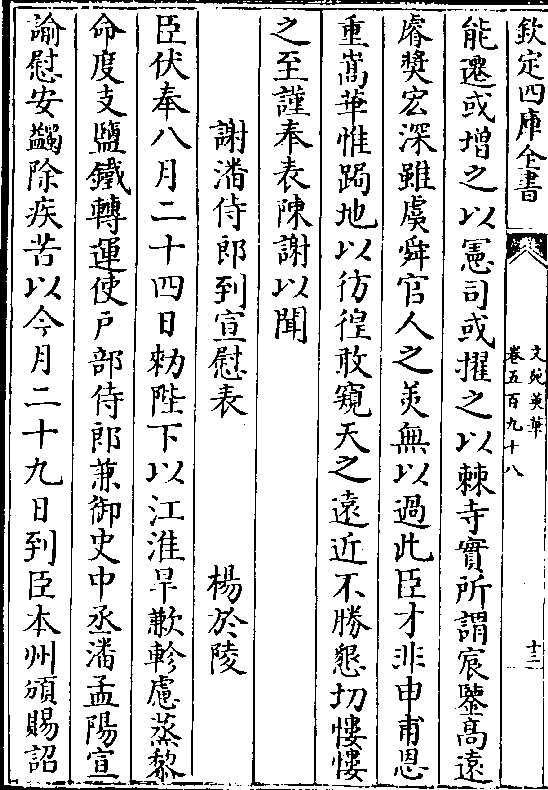 欽定四庫全書
文苑英華
卷五百九十八
十二
能遷或增之以憲司或擢之以棘寺實所謂宸鑒高遠
睿奬宏深雖虞舜官人之美無以過此臣才非申甫恩
重嵩華惟跼地以彷徨敢窺天之遠近不勝懇切悽悽
之至謹奉表陳謝以聞
謝潘侍郎到宣慰表 楊於陵
臣伏奉八月二十四日勑陛下以江淮旱歉軫慮蒸黎
命度支鹽鐵轉運使戶部侍郎兼御史中丞潘孟陽宣
諭慰安蠲除疾苦以今月二十九日到臣本州頒賜詔